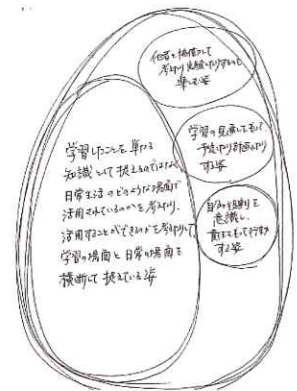 他者と協働して
考えたり実験したりすることを
楽しむ姿
学習の見通しをもって
予想したり計画したり
する姿
自分の役割を
意識し、
責任をもって行動
する姿
学習したことを単なる
知識として捉えるのではなく、
日常生活のどのような場面で
活用されているのかを考えたり、
活用することができるかを考えたりして、
学習の場面と日常の場面を
横断して捉えている姿